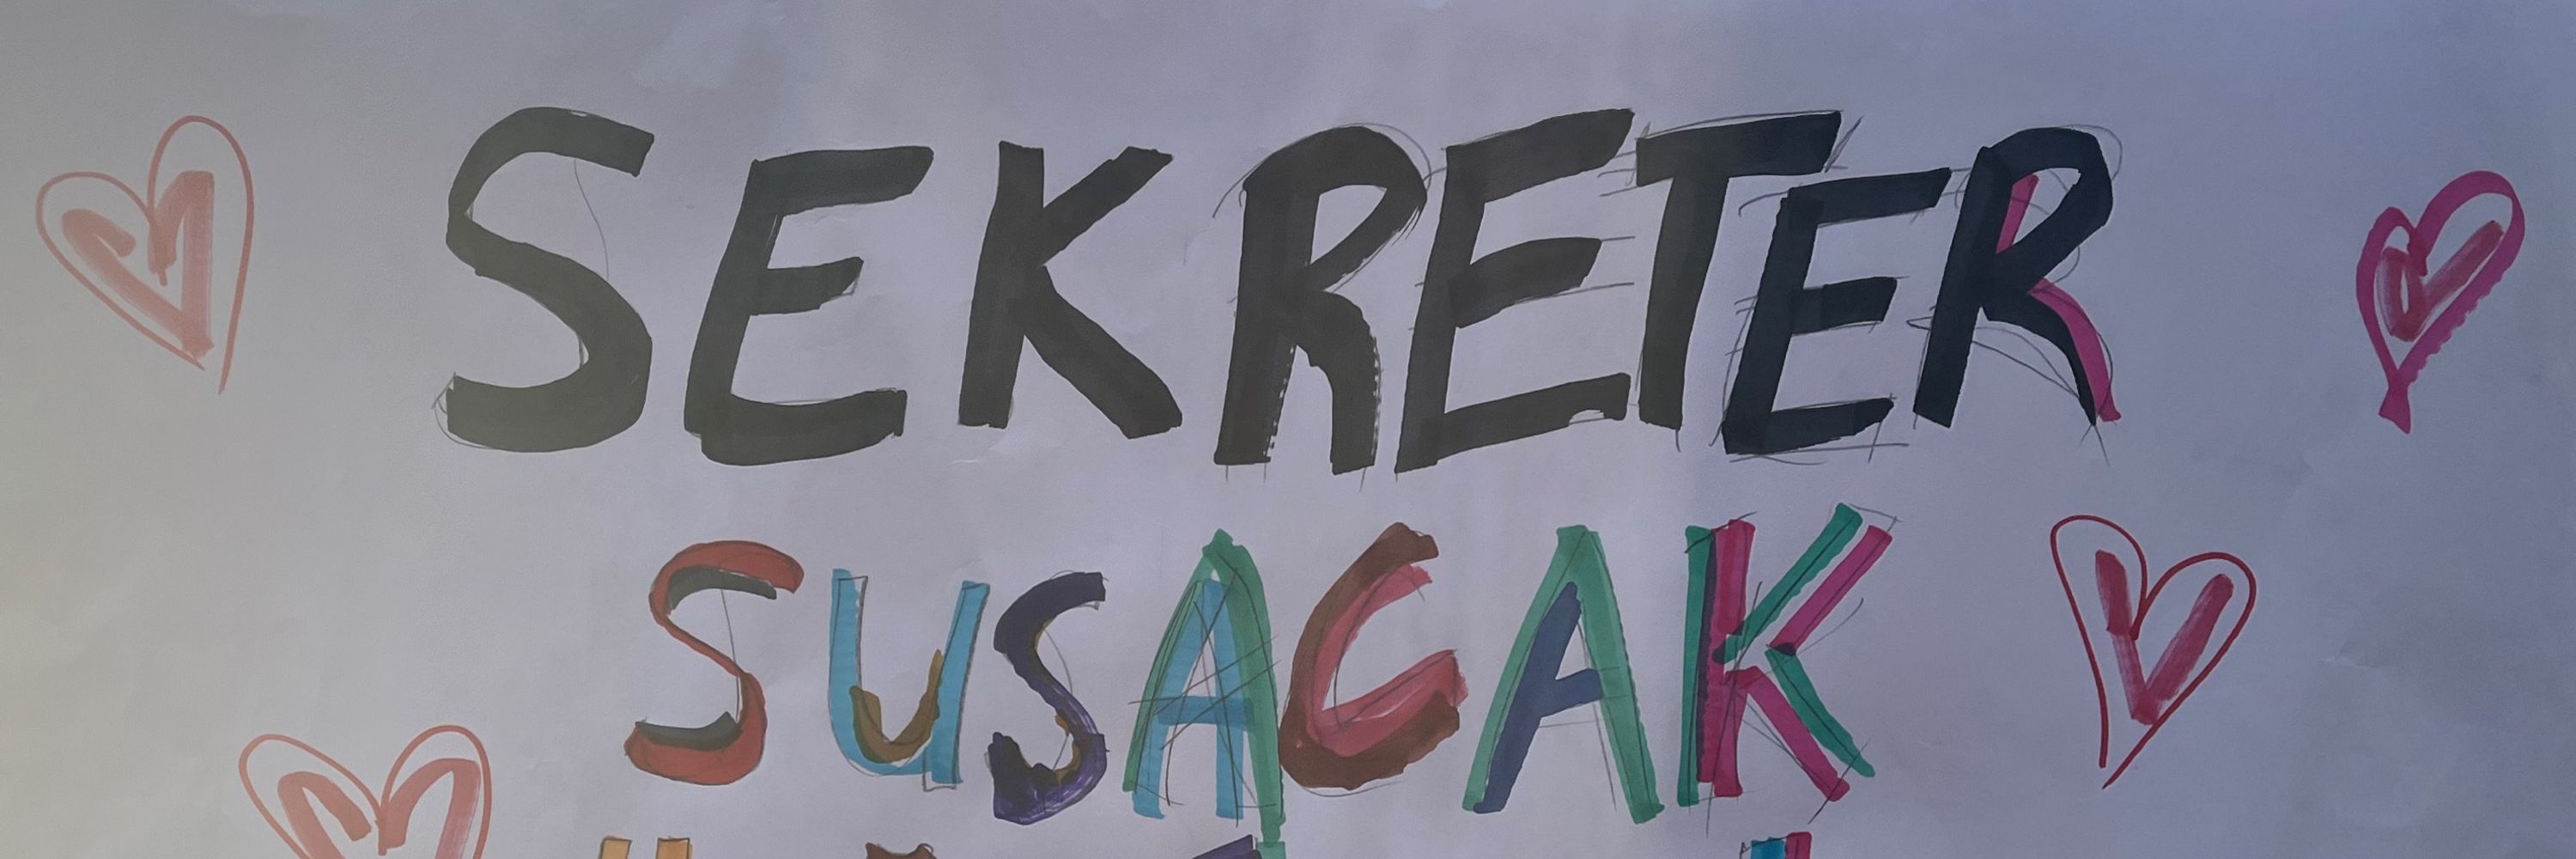 SEKRETER
SUSACAK